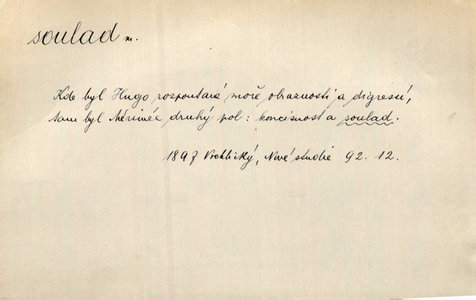 soulad m.
Kde byl Hugo rozpoutané moře obraznosti a digressí,
tam byl Mérimée druhý pol: koncisnost a soulad.
1897 Vrchlický, Nové studie 92. 12.